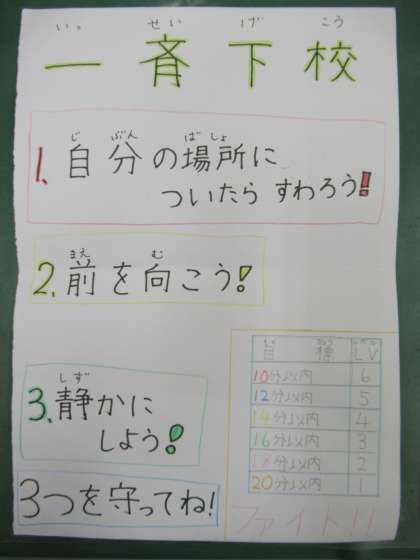 いっ せい げ こう
一斉下校
じ ぶん ば しょ
1、自分の場所に
ついたら すわろう!
まえ む
2、前を向こう!
しず
3、静かに
しよう!
3つを守ってね!
目標 L.V
10分以内 6
12分以内 5
14分以内 4
16分以内 3
18分以内 2
20分以内 1
ファイト!!